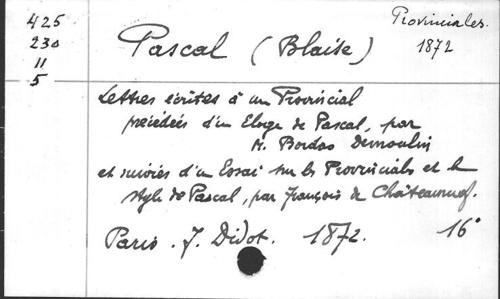 425
230
11
5
Pascal (Blaise)
Provinciales.
1872
Lettres écrites à un Provincial
précédées d'un Eloge de Pascal, par
M. Bordas Demoulin
et suivies d'un Essai sur les Provinciales et le
style de Pascal, par François de Châteauneuf.
Paris. J. Didot. 1872. 16°